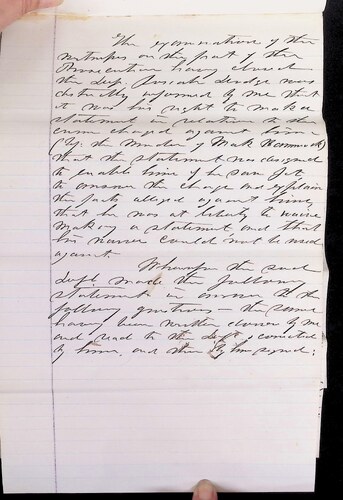 The examination of the
witnesses on the part of the
Prosecution having closed
the deft was
distinctly informed by me that
it was his right to make a
statement in relation to the
crime charged against him
(To: the Murder of Mark Hammock)
that the statement was designed
to enable him if he saw fit
to answer the charge and explain
the facts alleged against him,
that he was at liberty to waive
making a statement, and that
his waiver could not be used
against.
Whereupon the said
deft. made the following
statement in answer to the
following questions — the same
having been written down by me
and read to the deft, corrected
by him, and then by him signed;